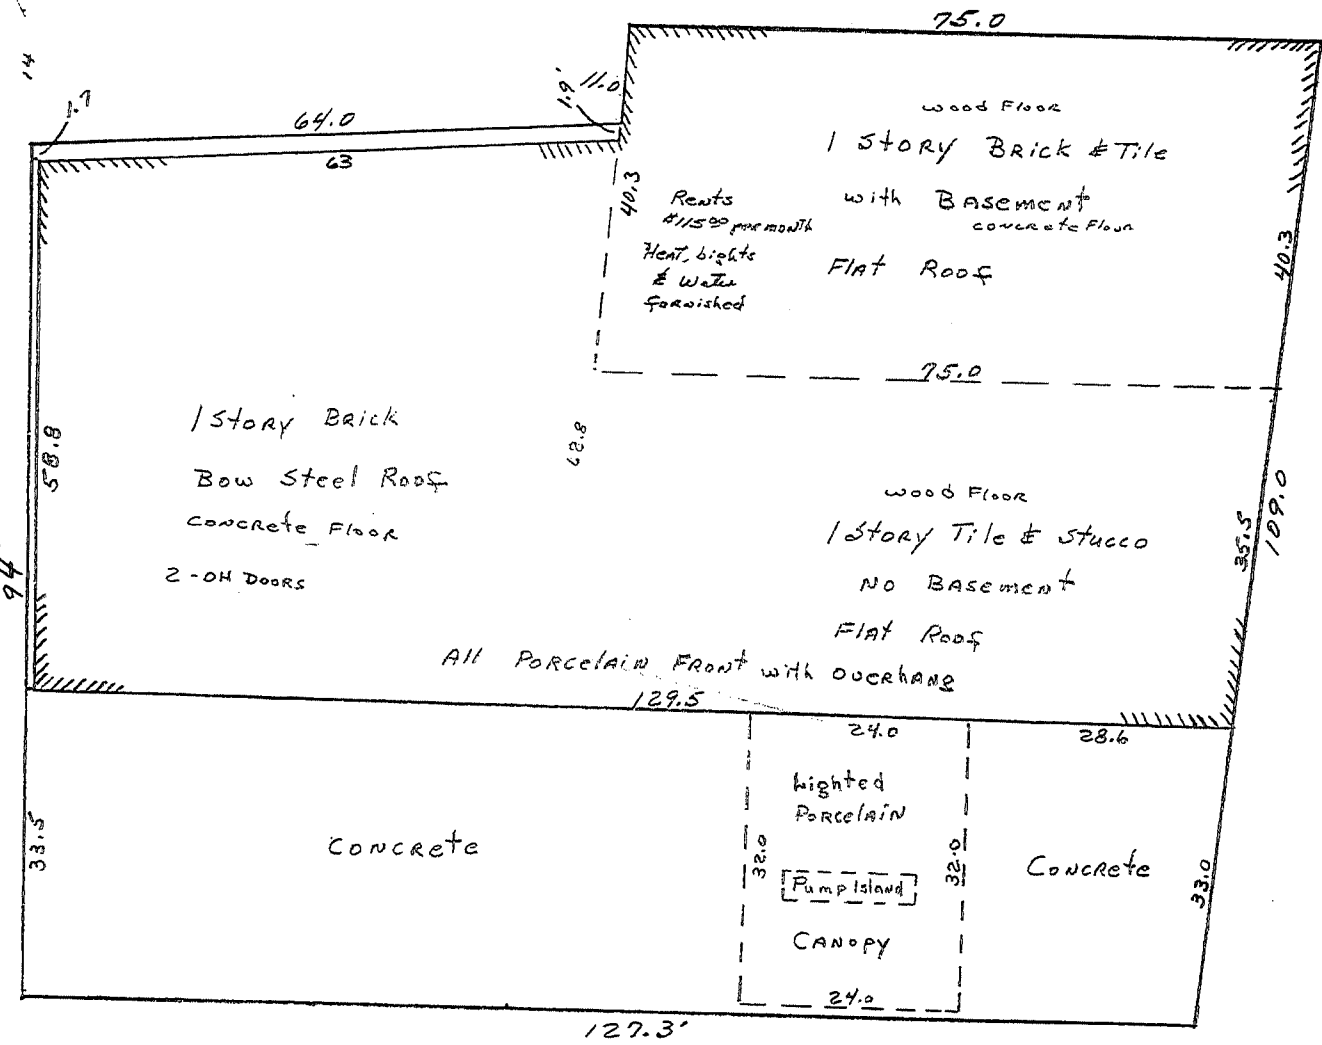 75.0
14
1.7
64.0
1.9'
11.0
63
wood Floor
1 Story Brick & Tile
with Basement
concrete Floor
Flat Roof
40.3
Rents
$115.00 per month
Heat, Lights
& Water
furnished
40.3
75.0
1 Story Brick
Bow Steel Roof
Concrete Floor
2-OH Doors
58.8
62.8
94
wood Floor
1 Story Tile & Stucco
No Basement
Flat Roof
35.5
109.0
All Porcelain Front with Overhang
129.5
24.0
28.6
Lighted
Porcelain
Pump Island
Canopy
32.0
32.0
24.0
Concrete
33.5
Concrete
33.0
127.3'